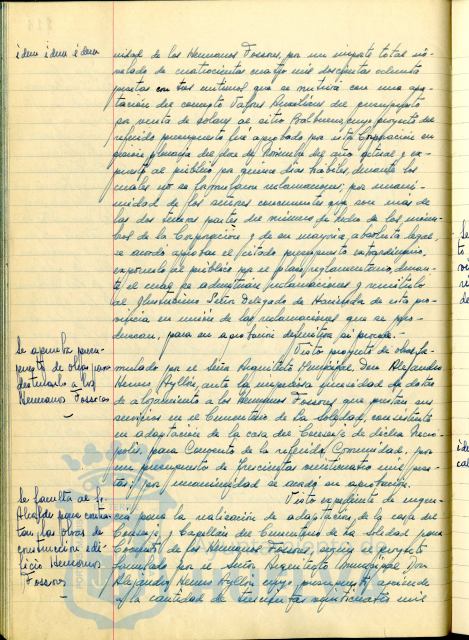 idem idem idem
nidad de los Hermanos Fossores, por un importe total ni-
velado de cuatrocientas cuatro mil doscientas ochenta
pesetas con tres céntimos que se nutrirá con una apor-
tación del concepto Valores Auxiliares del presupuesto
por venta de solares al sitio Balbueno, cuyo proyecto de
referido presupuesto fué aprobado por esta Corporación en
sesión plenaria del doce de Noviembre del año actual y ex-
puesto al público por quince días hábiles, durante los
cuales no se formularon reclamaciones; por unani-
midad de los señores concurrentes que son más de
las dos terceras partes del número de hecho de los miem-
bros de la Corporación y de su mayoría absoluta legal,
se acordó aprobar el citado presupuesto extraordinario,
exponerlo al público por el plazo reglamentario, duran-
te el cual se admitirán reclamaciones y remitirlo
al Ilustrísimo Señor Delegado de Hacienda de esta pro-
vincia en unión de las reclamaciones que se pro-
duzcan, para su aprobación definitiva si procede.
Se aprueba presu-
puesto de obras para
destinarlo a los
Hermanos Fossores
Visto proyecto de obras for-
mulado por el Señor Arquitecto Municipal Don Alejandro
Herrero Ayllón, ante la imperiosa necesidad de dotar
de alojamiento a los Hermanos Fossores que prestan sus
servicios en el Cementerio de la Soledad, consistente
en adaptación de la casa del Conserje de dicha Necró-
polis, para Convento de la referida Comunidad, por
un presupuesto de trescientas veinticuatro mil pese-
tas; por unanimidad se acordó su aprobación.
Se faculta al Sr.
Alcalde para contra-
tar las obras de
construcción edi-
ficio Hermanos
Fossores
Visto expediente de urgen-
cia para la realización de adaptación de la casa del
Conserje y Capellán del Cementerio de la Soledad para
Convento de los Hermanos Fossores, según el proyecto
formulado por el Señor Arquitecto Municipal Don
Alejandro Herrero Ayllón cuyo presupuesto asciende
a la cantidad de trescientas veinticuatro mil